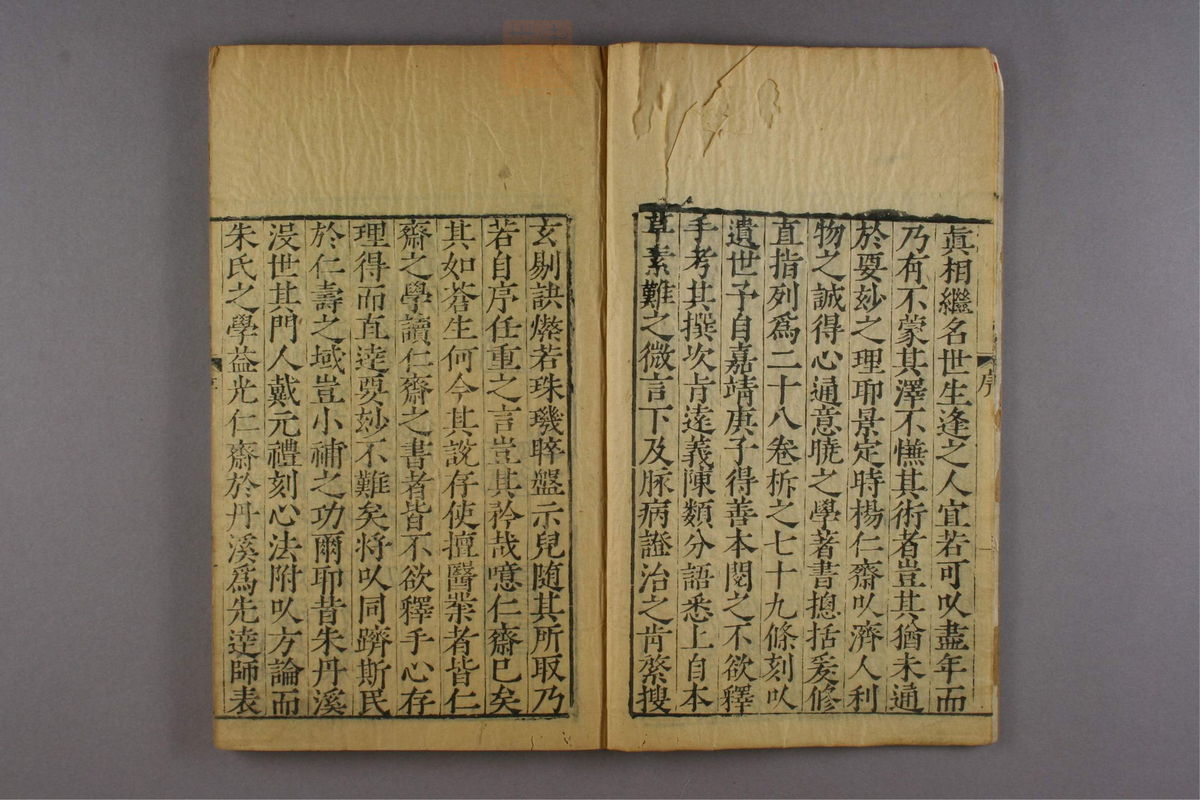 眞相繼名世生逢之人宜若可㕥盡年而
乃有不蒙其澤不憮其術者豈其猶未通
於要玅之理耶景定時楊仁齋㕥濟人利
物之誠得心通意曉之學著書揔括爰修
直指列爲二十八卷柝之七十九條刻㕥
遺世予自嘉靖庚子得善本閱之不欲釋
手考其撰次㫖逵義陳類分語悉上自本
草素難之微言下及脉病證治之肯綮搜
序
玄剔訣燦若珠璣晬盤示兒随其所取乃
若自序任重之言豈其矜哉噫仁齋已矣
其如蒼生何今其說存使擅醫業者皆仁
齋之學讀仁齋之書者皆不欲釋手心存
理得而直逹要玅不難矣将㕥同躋斯民
於仁壽之域豈小補之功爾耶昔朱丹溪
没世其門人戴元禮刻心法附㕥方論而
朱氏之學益光仁齋於丹溪爲先逹師表